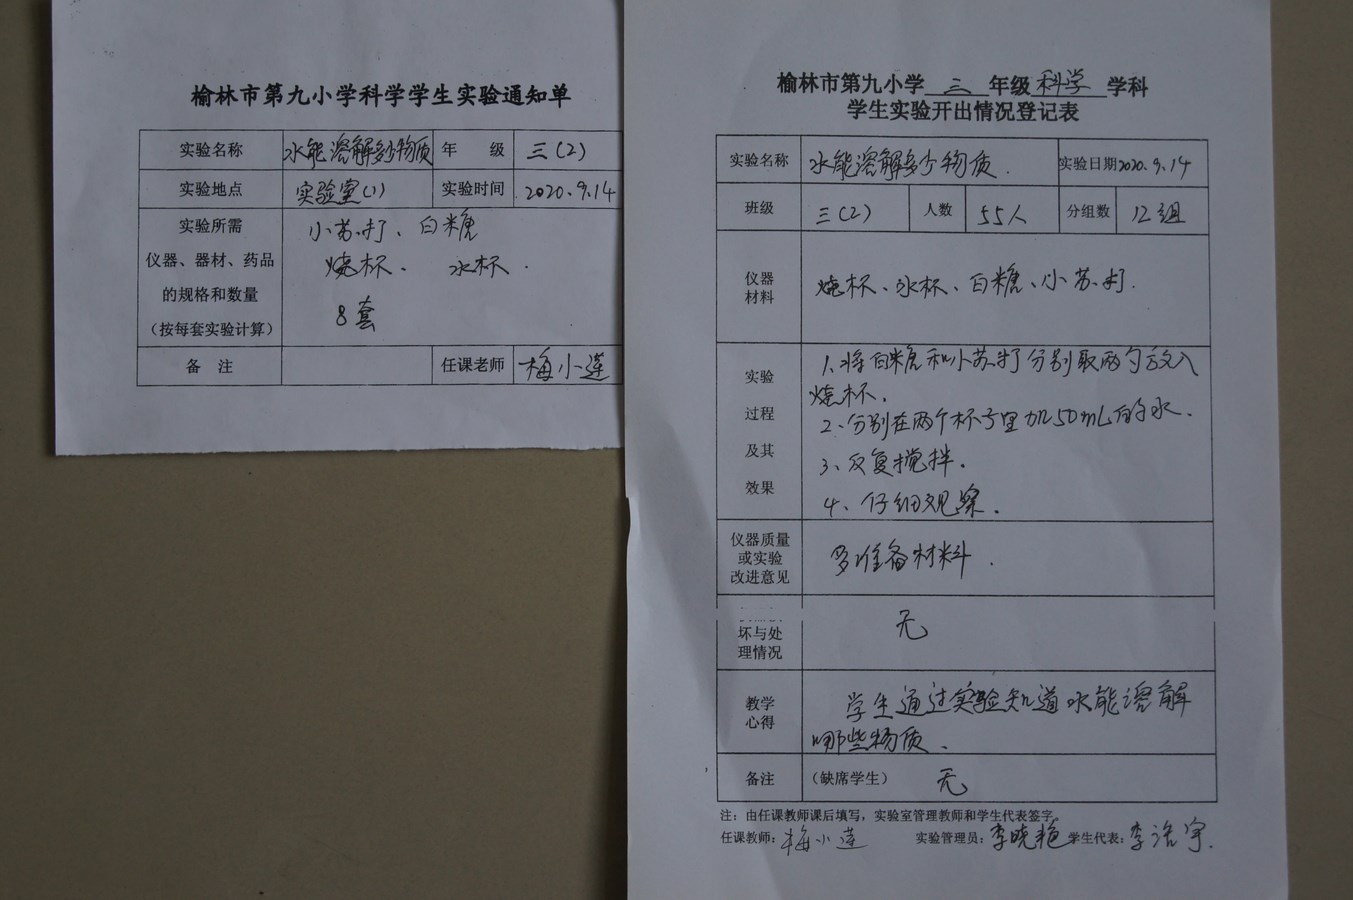 榆林市第九小学科学学生实验通知单
实验名称 水能溶解多少物质 年 级 三(2)
实验地点 实验室(1) 实验时间 2020.9.14
实验所需
仪器、器材、药品
的规格和数量
(按每套实验计算)
小苏打、白糖
烧杯、水杯.
8套
备 注 任课老师 梅小莲
榆林市第九小学 三 年级 科学 学科
学生实验开出情况登记表
实验名称 水能溶解多少物质. 实验日期 2020.9.14
班级 三(2) 人数 55人 分组数 12组
仪器
材料
烧杯、水杯、白糖、小苏打.
实验
过程
及其
效果
1.将白糖和小苏打分别取两勺放入
烧杯.
2、分别在两个杯子里加50mL的水.
3、反复搅拌.
4、仔细观察.
仪器质量
或实验
改进意见
多准备材料.
坏与处
理情况
无
教学
心得
学生通过实验知道水能溶解
哪些物质、
备注 (缺席学生) 无
注：由任课教师课后填写，实验室管理教师和学生代表签字。
任课教师：梅小莲 实验管理员：李晓艳 学生代表：李浩宇.